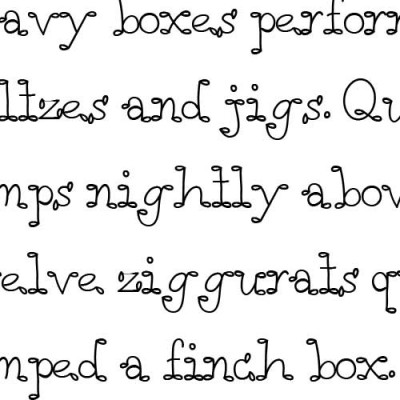 avy boxes perfor
ltzes and jigs. Qu
mps nightly abov
elve ziggurats q
mped a finch box.